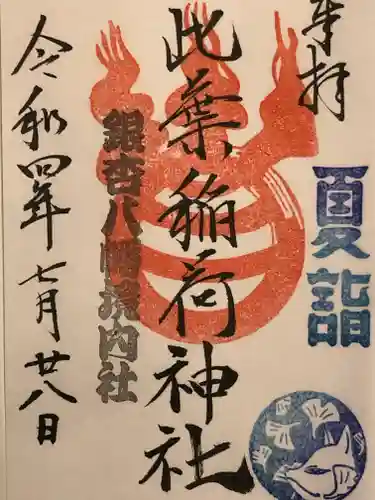 奉拝
夏詣
此葉稲荷神社
銀杏八幡境内社
令和四年七月廿八日